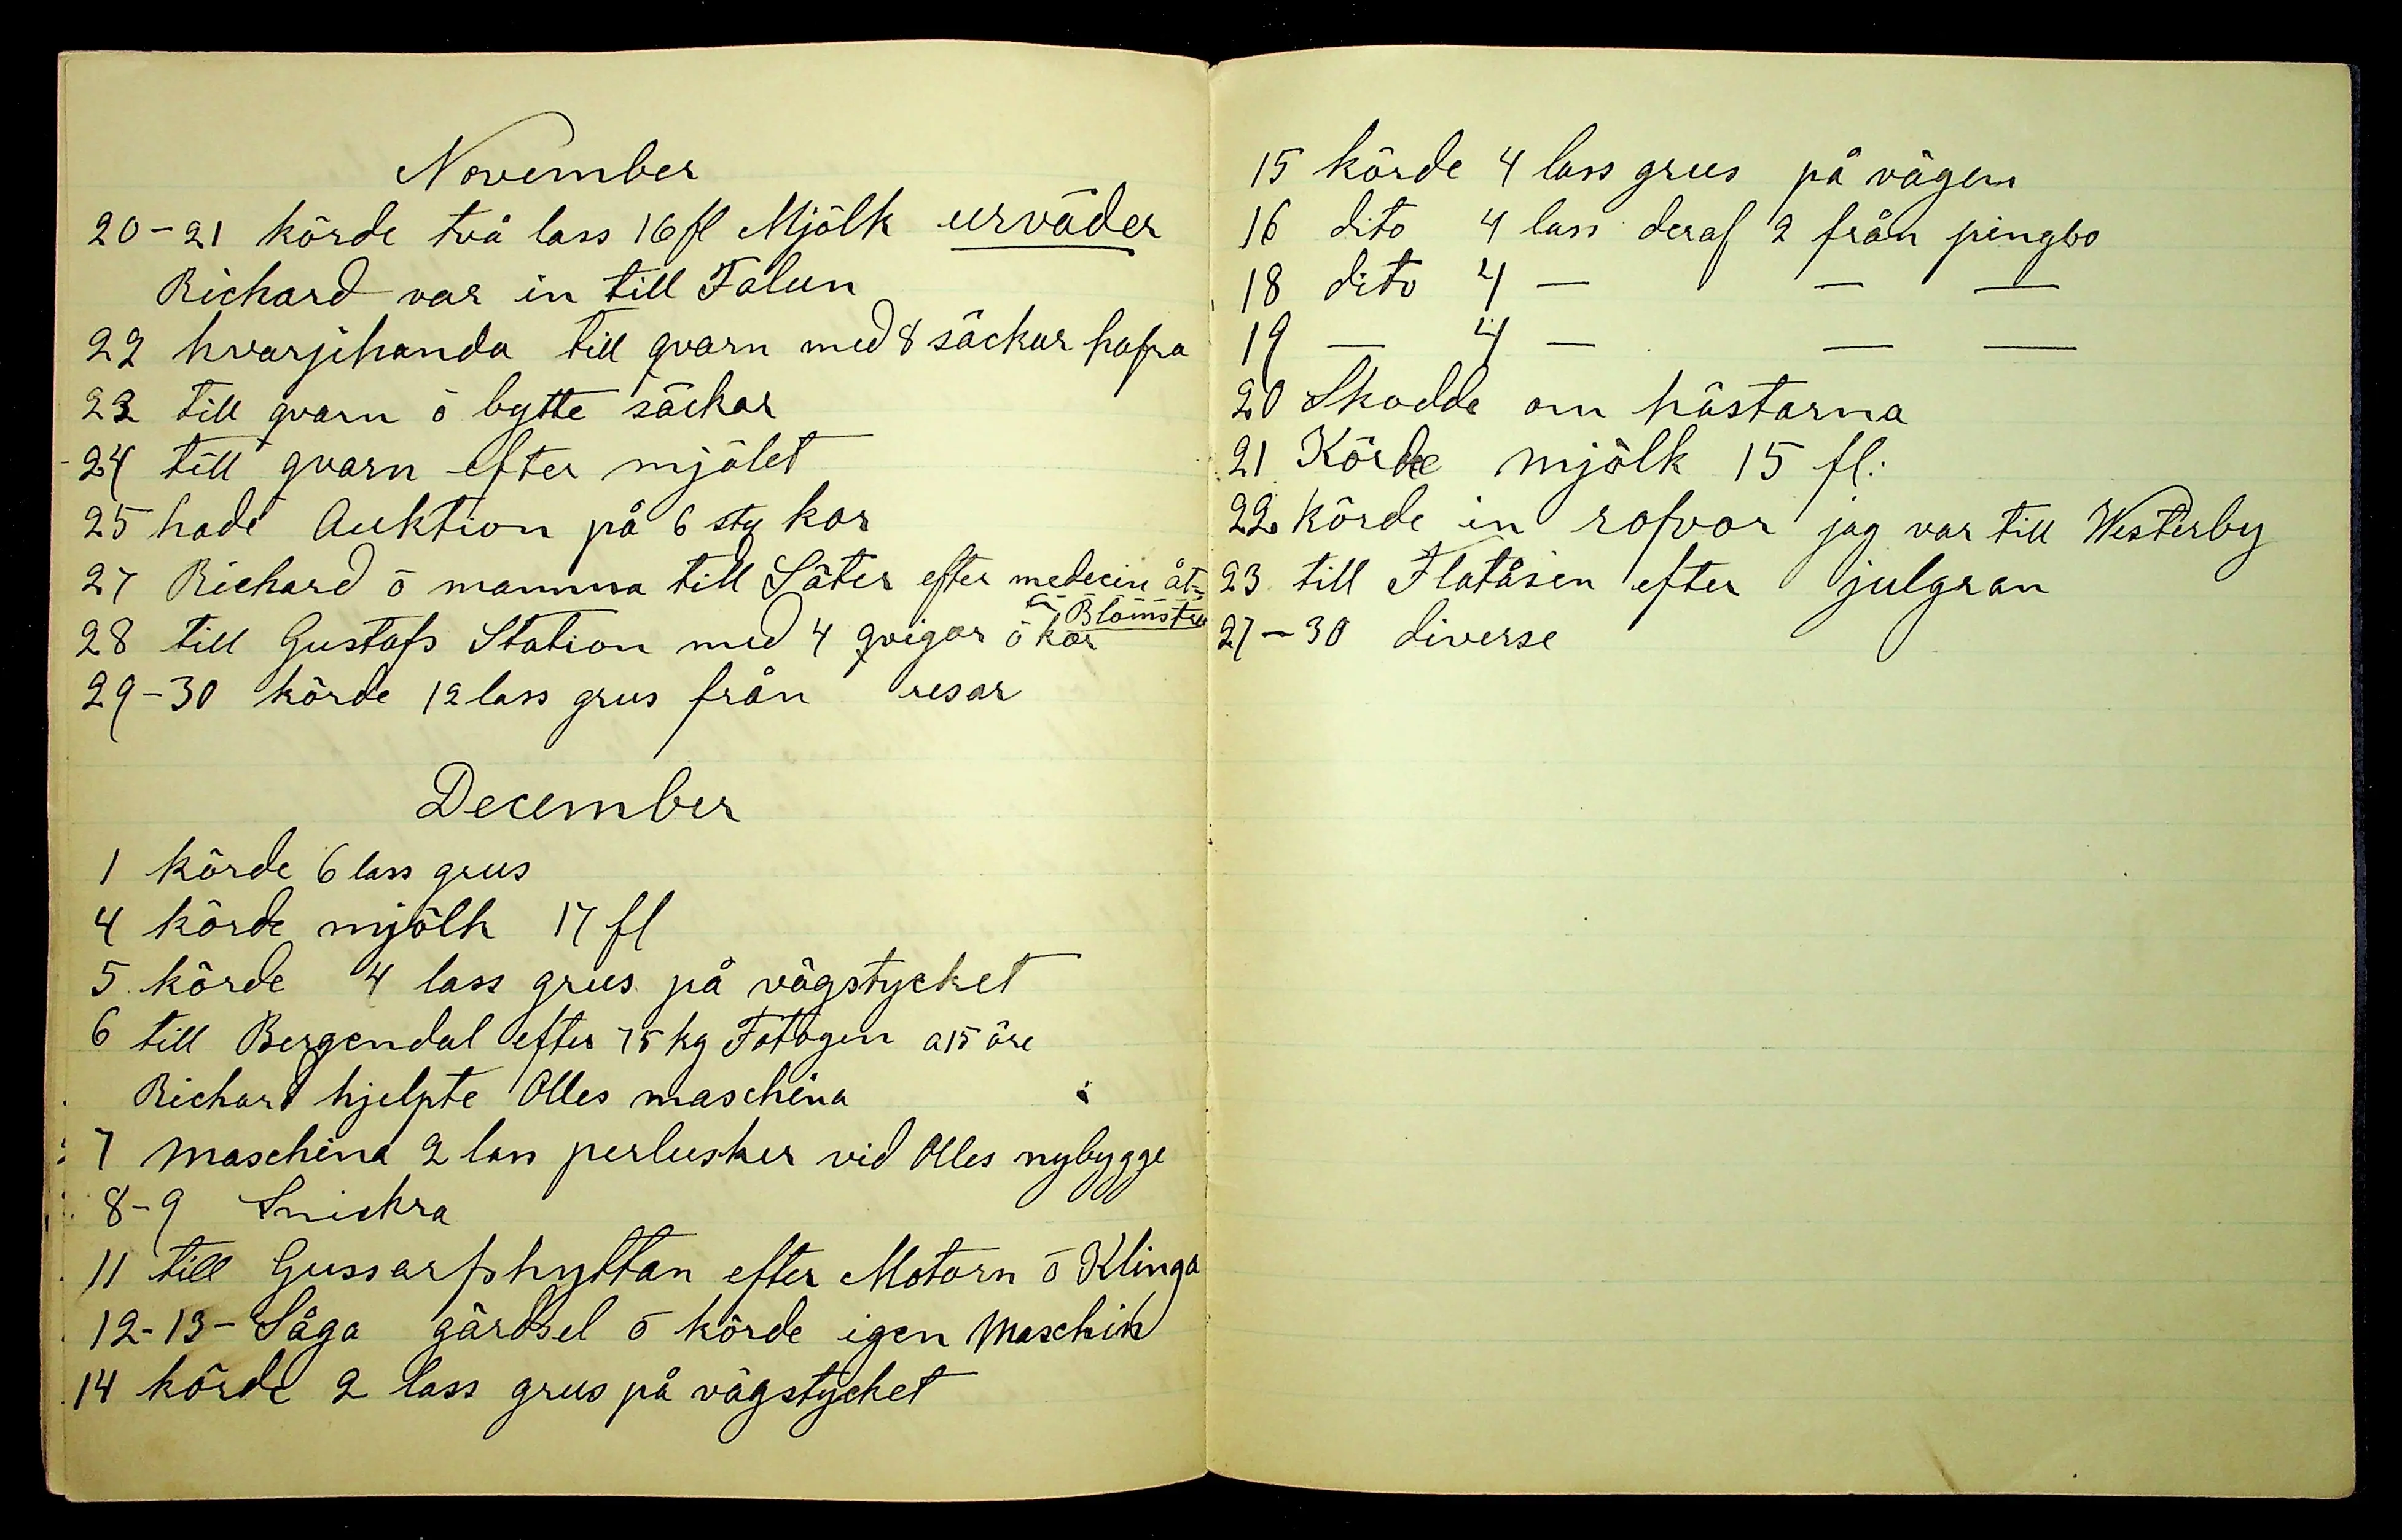 November
20-21 körde två lass 16 fl Mjölk urväder
Richard var in till Falun
22 hvarjehanda till qvarn med 8 säckar hafra
23 till qvarn ō bytte säckar
24 till qvarn efter mjölet
25 hade Auktion på 6 sty kor
27 Richard ō mamma till Säter efter medecin åt
Blomstra
28 till Gustafs Station med 4 qvigor ō kor
29-30 körde 12 lass grus från resar
December
1 körde 6 lass grus
4 körde mjölk 17 fl
5 körde 4 lass grus på vägstycket
6 till Bergendal efter 75 kg Fotogen a 15 öre
Richard hjelpte Olles maschina
7 maschina 2 lass perlusker vid Olles nybygge
8-9 Snickra
11 till Gussarfshyttan efter Motorn ō Klinga
12-13- Såga gärdsel ō körde igen Maschin
14 körde 2 lass grus på vägstycket
15 körde 4 lass grus på vägen
16 dito 4 lass deraf 2 från pingbo
18 dito 4 — — —
19 — 4 — — —
20 Skodde om hästarna
21 Körde mjölk 15 fl:
22 körde in rofvor jag var till Westerby
23 till Flatåsen efter julgran
27-30 diverse